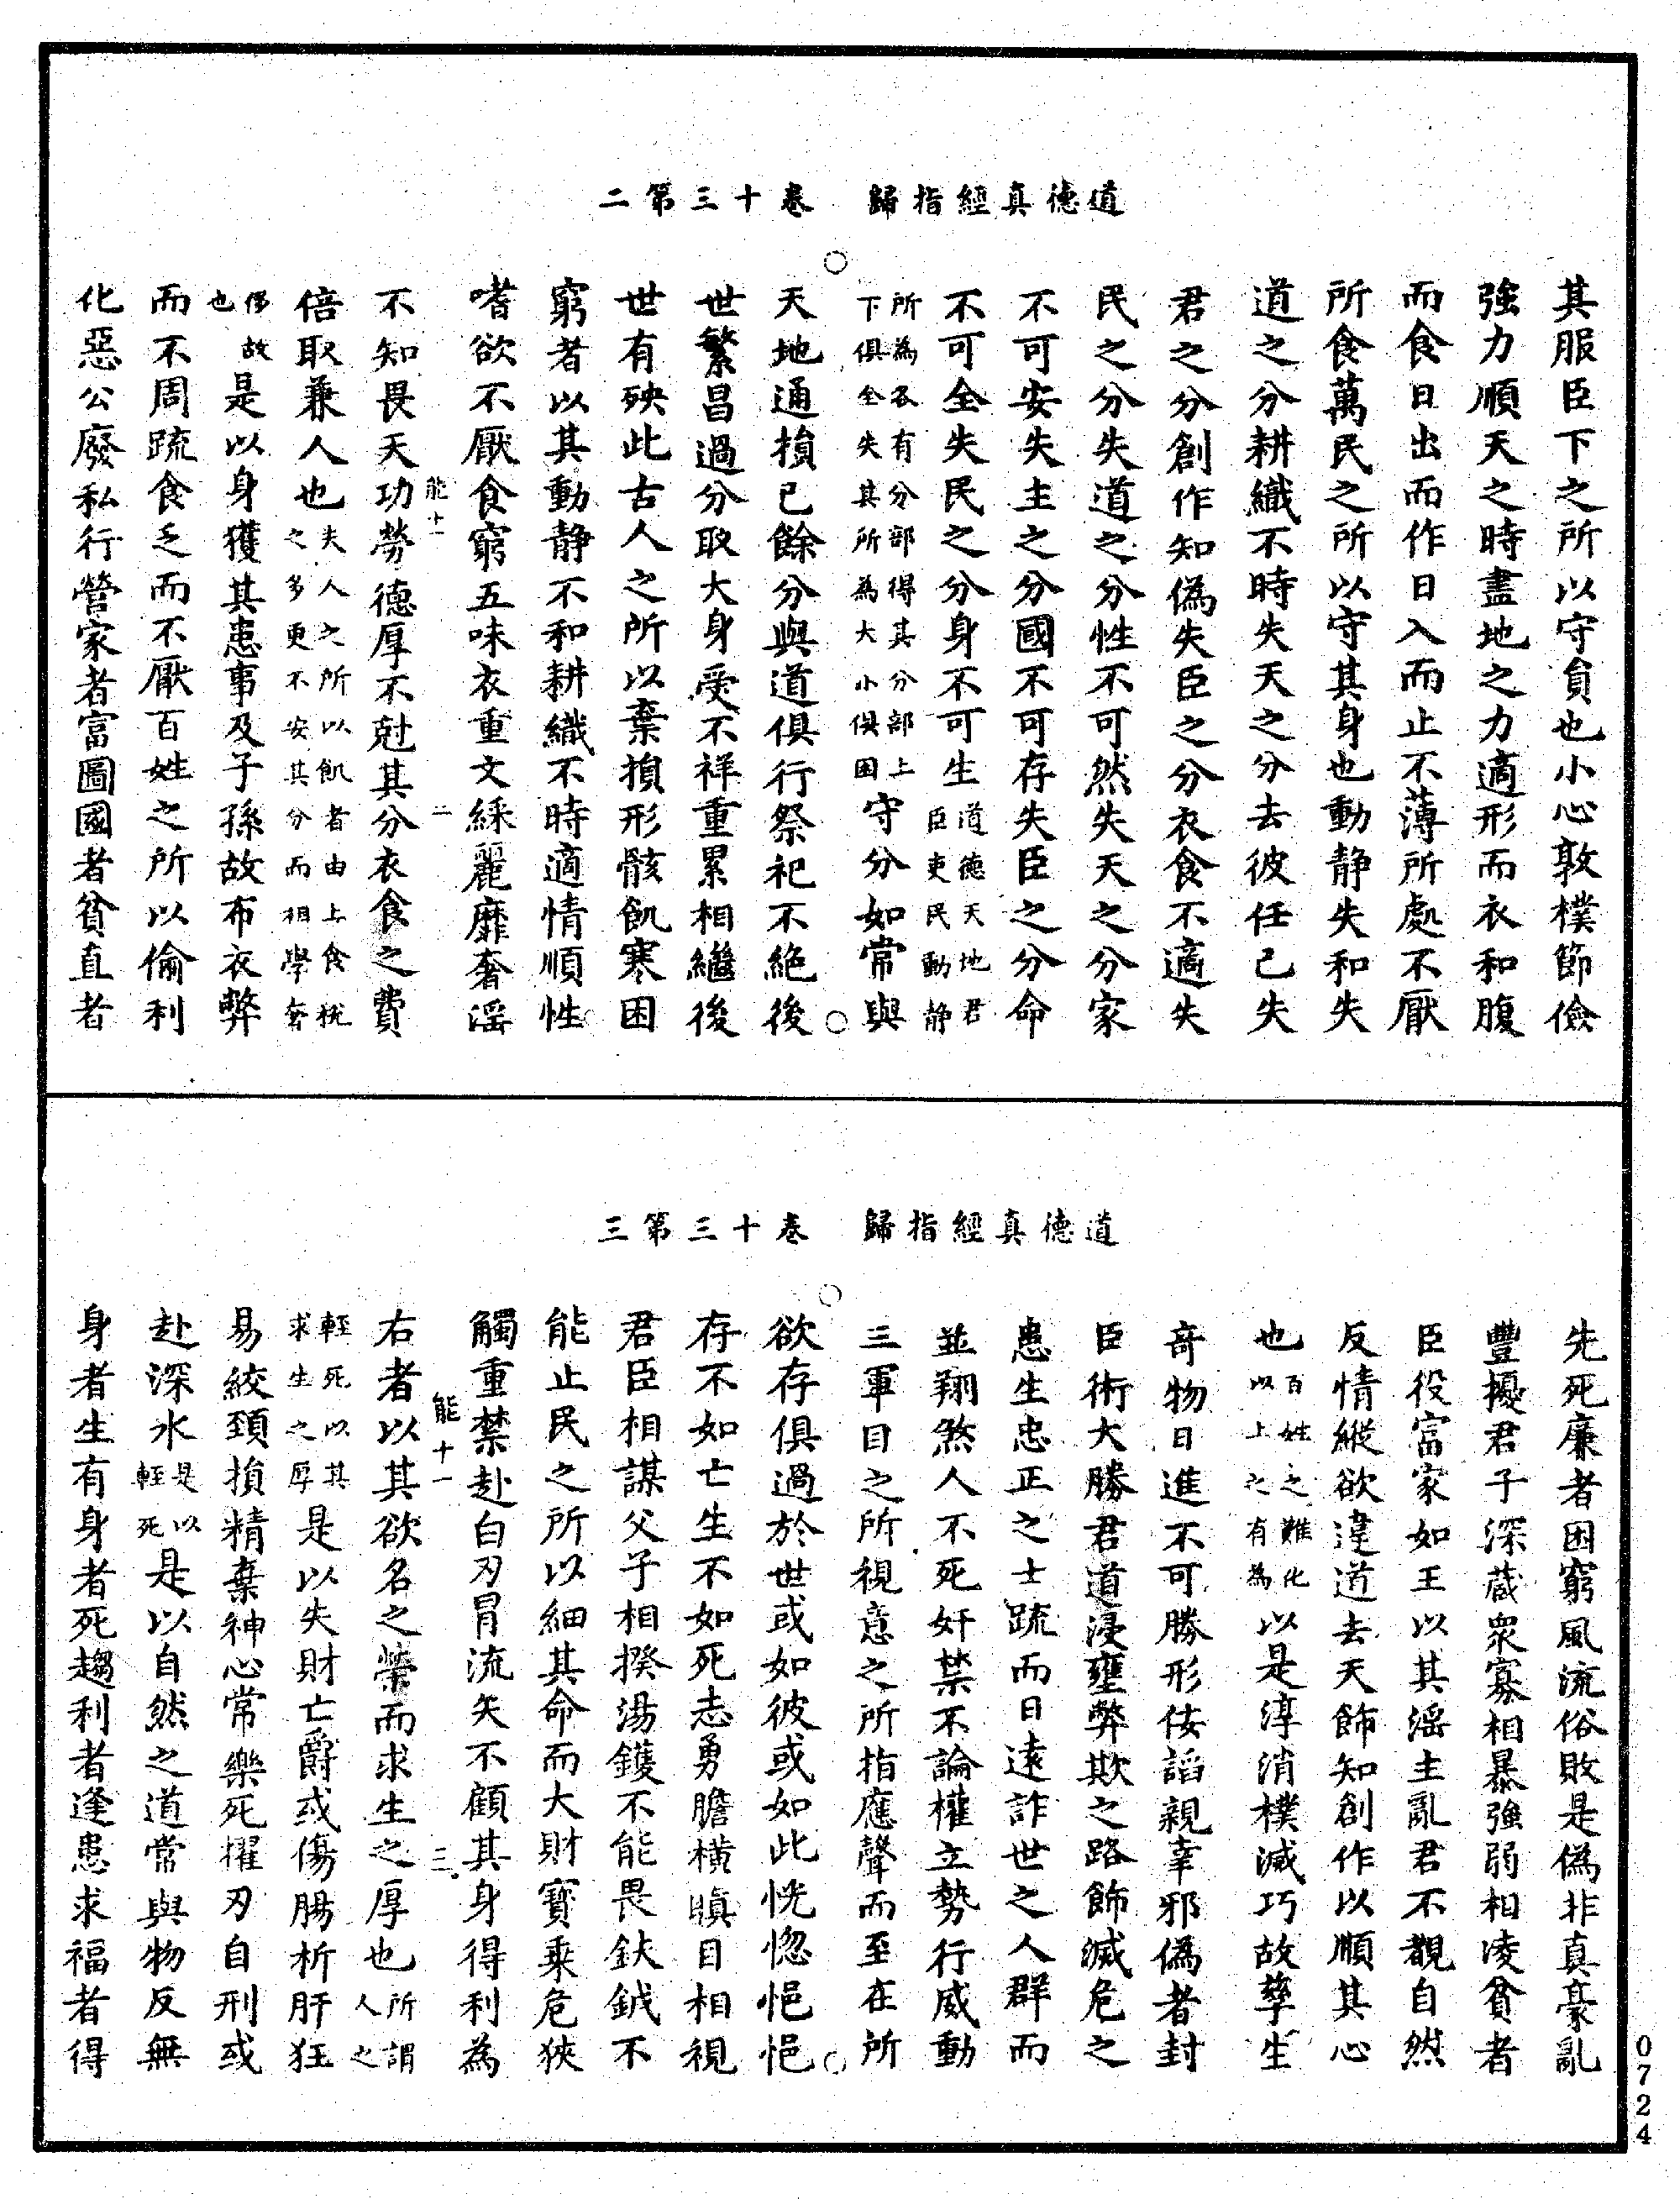 道德真經指歸　卷十三第二
其服臣下之所以守貟也小心敦樸節儉
強力順天之時盡地之力適形而衣和腹
而食日出而作日入而止不薄所處不厭
所食萬民之所以守其身也動静失和失
道之分耕織不時失天之分去彼任己失
君之分創作知偽失臣之分衣食不適失
民之分失道之分性不可然失天之分家
不可安失主之分國不可存失臣之分命
不可全失民之分身不可生道德天地君臣吏民動静
所為各有分部得其分部上下俱全失其所為大小俱困守分如常與
天地通損己餘分與道俱行祭祀不絶後
世繁昌過分取大身受不祥重累相繼後
世有殃此古人之所以棄損形骸飢寒困
窮者以其動静不和耕織不時適情順性
嗜欲不厭食窮五味衣重文綵麗靡奢淫
能十一　二
不知畏天功勞德厚不尅其分衣食之費
倍取兼人也夫人之所以飢者由上食稅之多更不安其分而相學奢
侈故也故是以身獲其患事及子孫故布衣弊
而不周疏食乏而不厭百姓之所以偷利
化惡公廢私行營家者富圖國者貧直者
道德真經指歸　卷十三第三
先死廉者困窮風流俗敗是偽非真豪亂
豐擾君子深藏衆寡相暴強弱相凌貧者
臣役富家如王以其淫主亂君不觀自然
反情縱欲違道去天飾知創作以順其心
也百姓之難化以上之有為以是淳消樸滅巧故孳生
奇物日進不可勝形佞謟親幸邪偽者封
臣術大勝君道浸壅弊欺之路飾滅危之
患生忠正之士疏而日遠詐世之人群而
並翔煞人不死奸禁不論權立勢行威動
三軍目之所視意之所指應聲而至在所
欲存俱過於世或如彼或如此恍惚悒悒
存不如亡生不如死志勇膽橫瞋目相視
君臣相謀父子相揆湯鑊不能畏鈇鉞不
能止民之所以細其命而大財寶乘危狹
觸重禁赴白刃冒流矢不顧其身得利為
能十一　三
右者以其欲名之榮而求生之厚也所謂人之
輕死以其求生之厚是以失財亡爵或傷腸析肝狂
易絞頚損精棄神心常樂死擢刃自刑或
赴深水是以輕死是以自然之道常與物反無
身者生有身者死趨利者逢患求福者得
0724